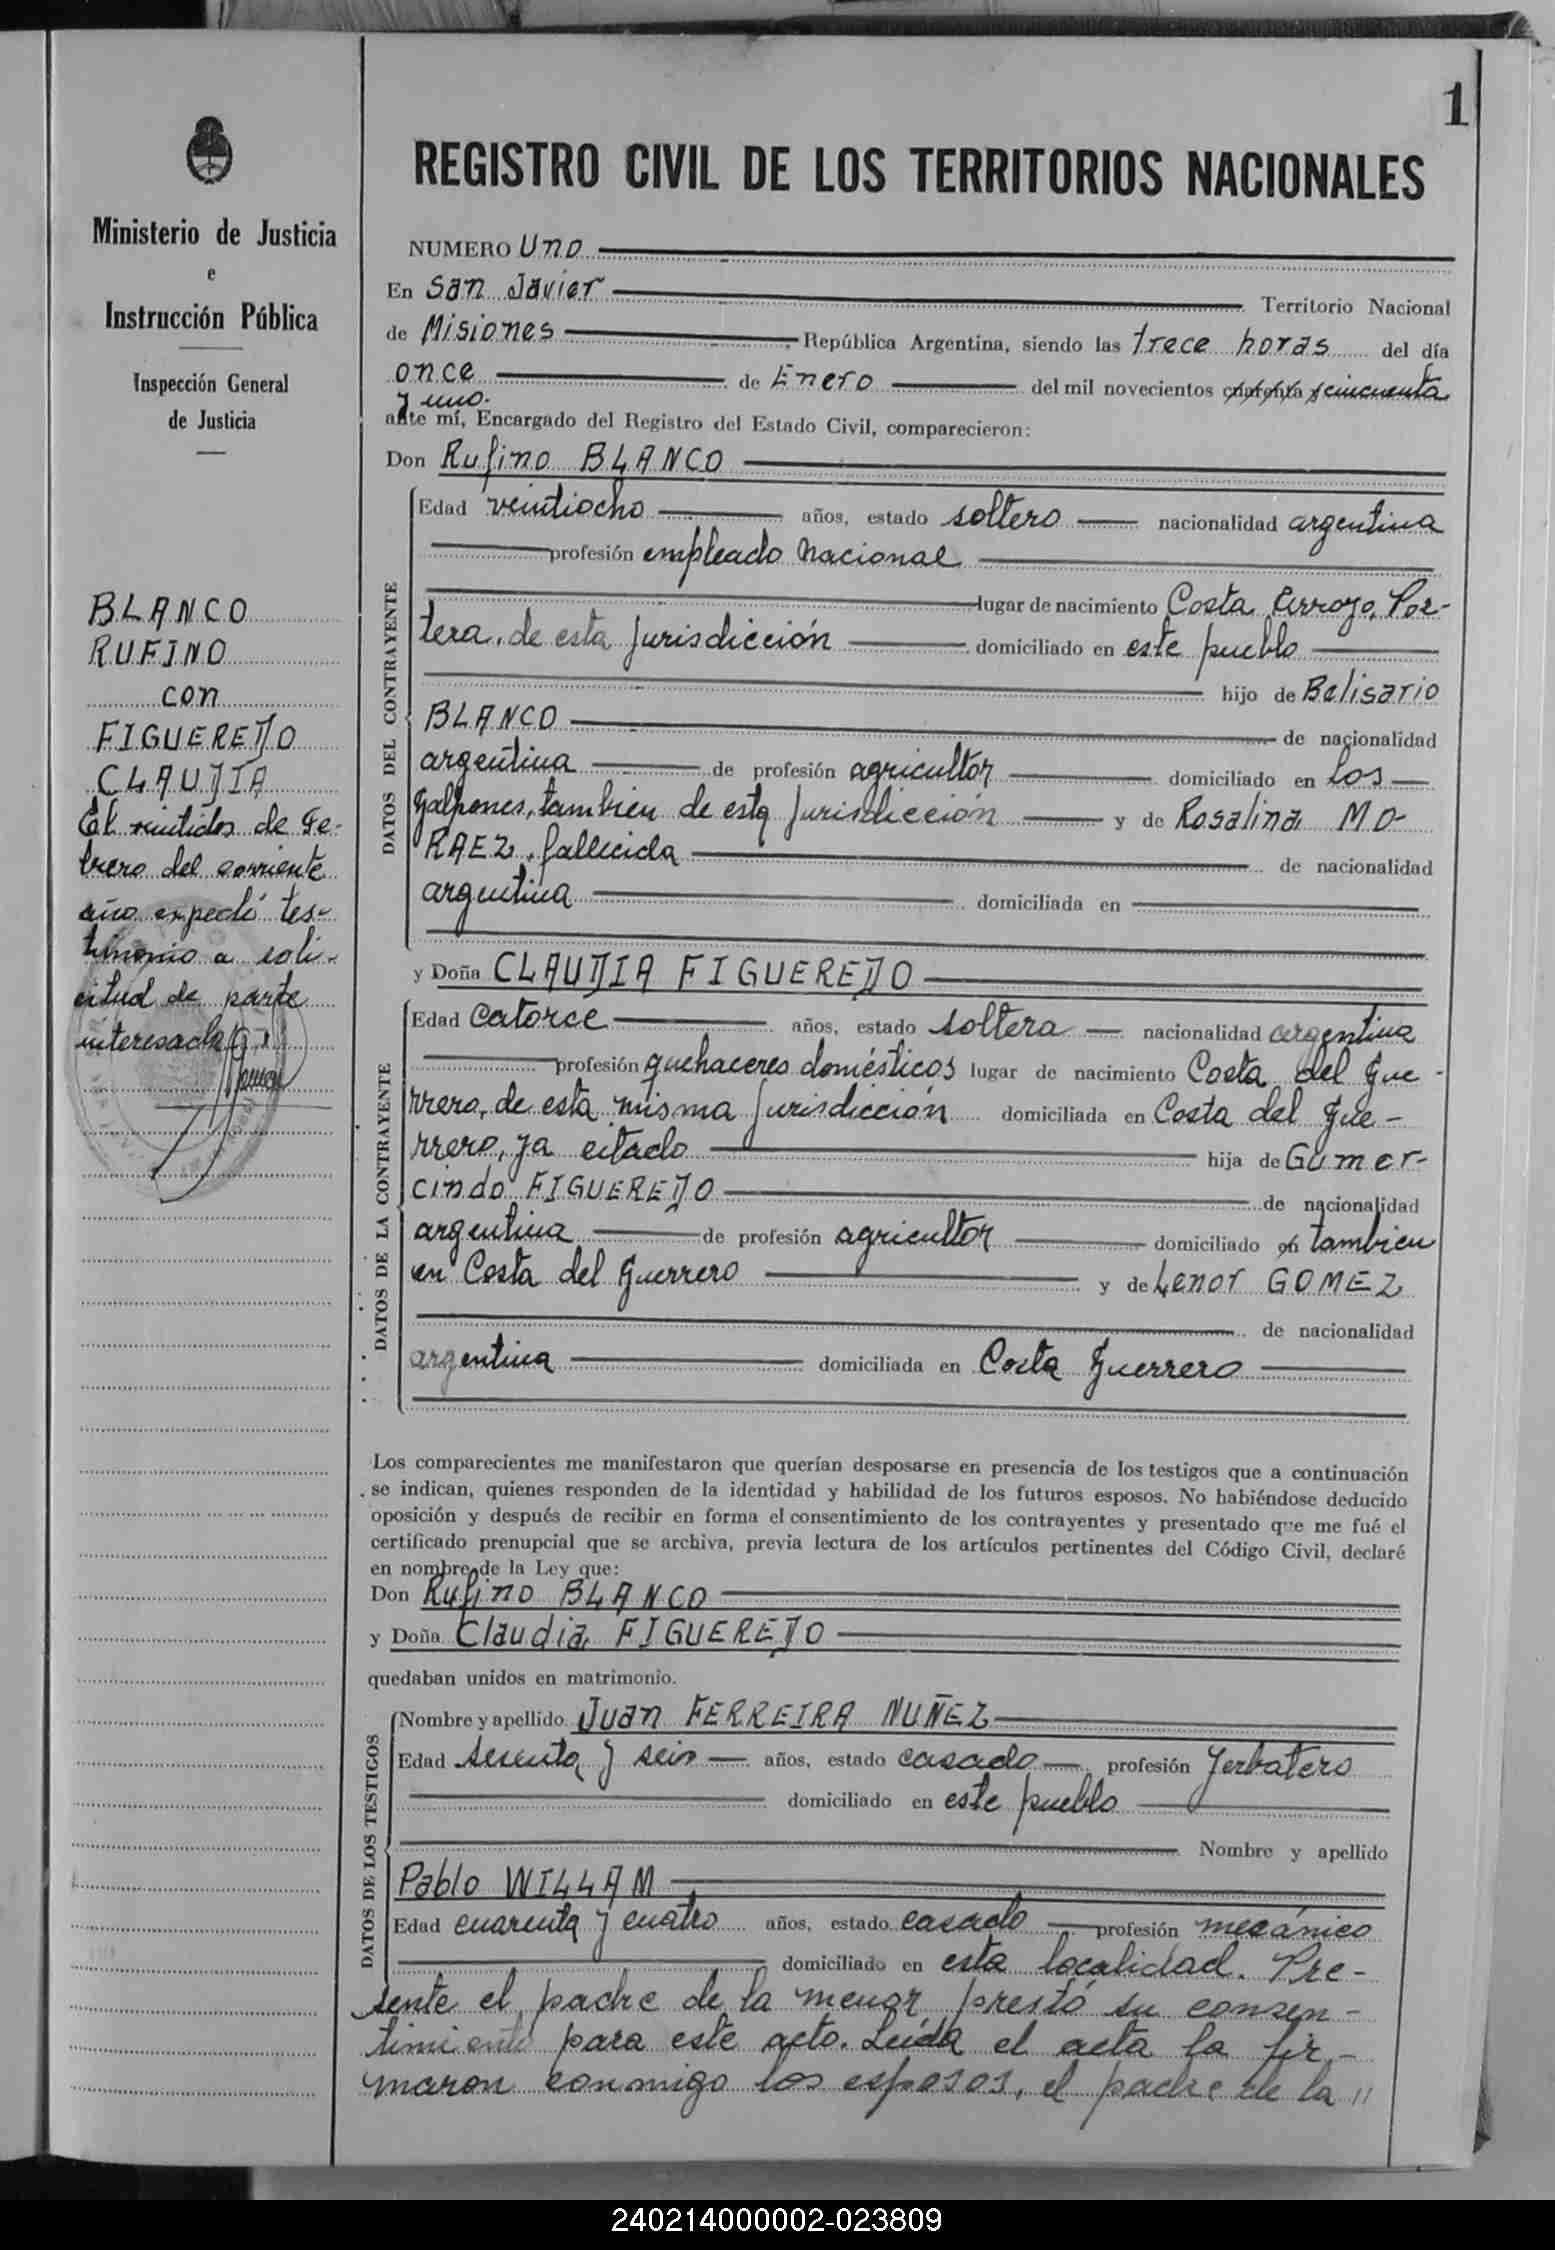 1
Ministerio de Justicia
e
Instrucción Pública
Inspección General
de Justicia
BLANCO
RUFINO
con
FIGUEREDO
CLAUDIA
El veintidos de Fe-
brero del corriente
año expedí tes-
timonio a soli-
citud de parte
interesada
REGISTRO CIVIL DE LOS TERRITORIOS NACIONALES
NUMERO Uno
En San Javier Territorio Nacional
de Misiones República Argentina, siendo las trece horas del día
once de Enero del mil novecientos cuarenta y cincuenta
y uno.
ante mí, Encargado del Registro del Estado Civil, comparecieron:
Don Rufino BLANCO
DATOS DEL CONTRAYENTE
Edad veintiocho años, estado soltero nacionalidad argentina
profesión empleado Nacional
lugar de nacimiento Costa Arroyo, Por-
tera, de esta jurisdicción domiciliado en este pueblo
hijo de Belisario
BLANCO de nacionalidad
argentina de profesión agricultor domiciliado en Los
galpones, tambien de esta jurisdicción y de Rosalina MO-
RAEZ, fallecida de nacionalidad
argentina domiciliada en
y Doña CLAUDIA FIGUEREDO
DATOS DE LA CONTRAYENTE
Edad catorce años, estado soltera nacionalidad argentina
profesión quehaceres domésticos lugar de nacimiento Costa del Gue-
rrero, de esta misma jurisdicción domiciliada en Costa del Gue-
rrero, ya citado hija de Gumer-
cindo FIGUEREDO de nacionalidad
argentina de profesión agricultor domiciliado en tambien
en Costa del Guerrero y de Lenor GOMEZ
de nacionalidad
argentina domiciliada en Costa Guerrero
Los comparecientes me manifestaron que querían desposarse en presencia de los testigos que a continuación
se indican, quienes responden de la identidad y habilidad de los futuros esposos. No habiéndose deducido
oposición y después de recibir en forma el consentimiento de los contrayentes y presentado que me fué el
certificado prenupcial que se archiva, previa lectura de los artículos pertinentes del Código Civil, declaré
en nombre de la Ley que:
Don Rufino BLANCO
y Doña Claudia FIGUEREDO
quedaban unidos en matrimonio.
DATOS DE LOS TESTIGOS
Nombre y apellido Juan FERREIRA NUÑEZ
Edad sesenta y seis años, estado casado profesión yerbatero
domiciliado en este pueblo
Nombre y apellido
Pablo WILLAM
Edad cuarenta y cuatro años, estado casado profesión mecánico
domiciliado en esta localidad. Pre-
sente el padre de la menor prestó su consen-
timiento para este acto. Leída el acta la fir-
maron conmigo los esposos, el padre de la "
240214000002-023809